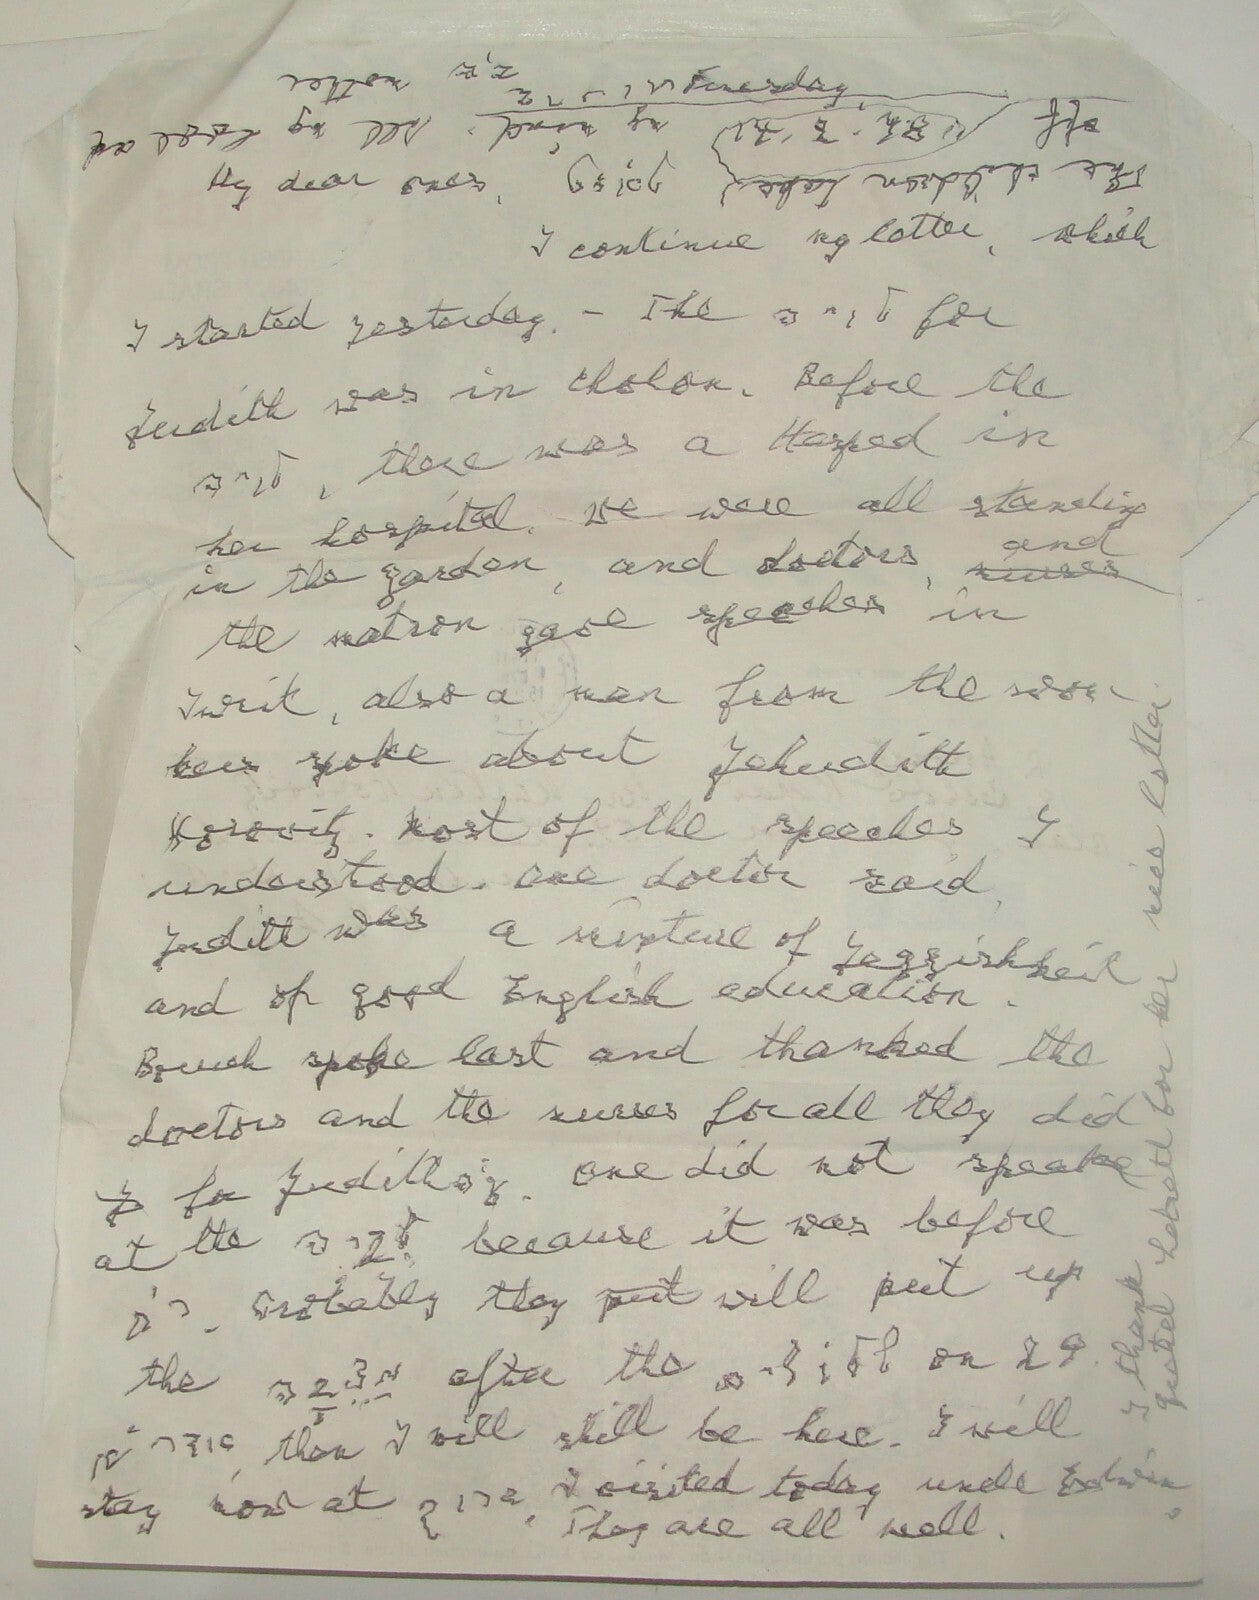 Tuesday
My dear ones,
I continue my letter, which
I started yesterday. – The לויה for
Judith was in Cholon. Before the
לויה, there was a Hesped in
her hospital. We were all standing
in the garden, and doctors, nurses and
the matron gave speeches in
Iwrit, also a man from the
spoke about Jehudith
Horovitz. Most of the speeches I
understood. One doctor said,
Judith was a mixture of Jeggishkeit
and of good English education.
Bruch spoke last and thanked the
doctors and the nurses for all they did
for Judith. One did not speake
at the because it was before
Probably they put will put up
the מצבה after the שלושים on 29.
then I will still be here. I will
stay now at I visited today uncle Edwin,
They are all well.
I thank
Gretel Lebrett for her nice letter.
The children take
off my mind. All my love
mother